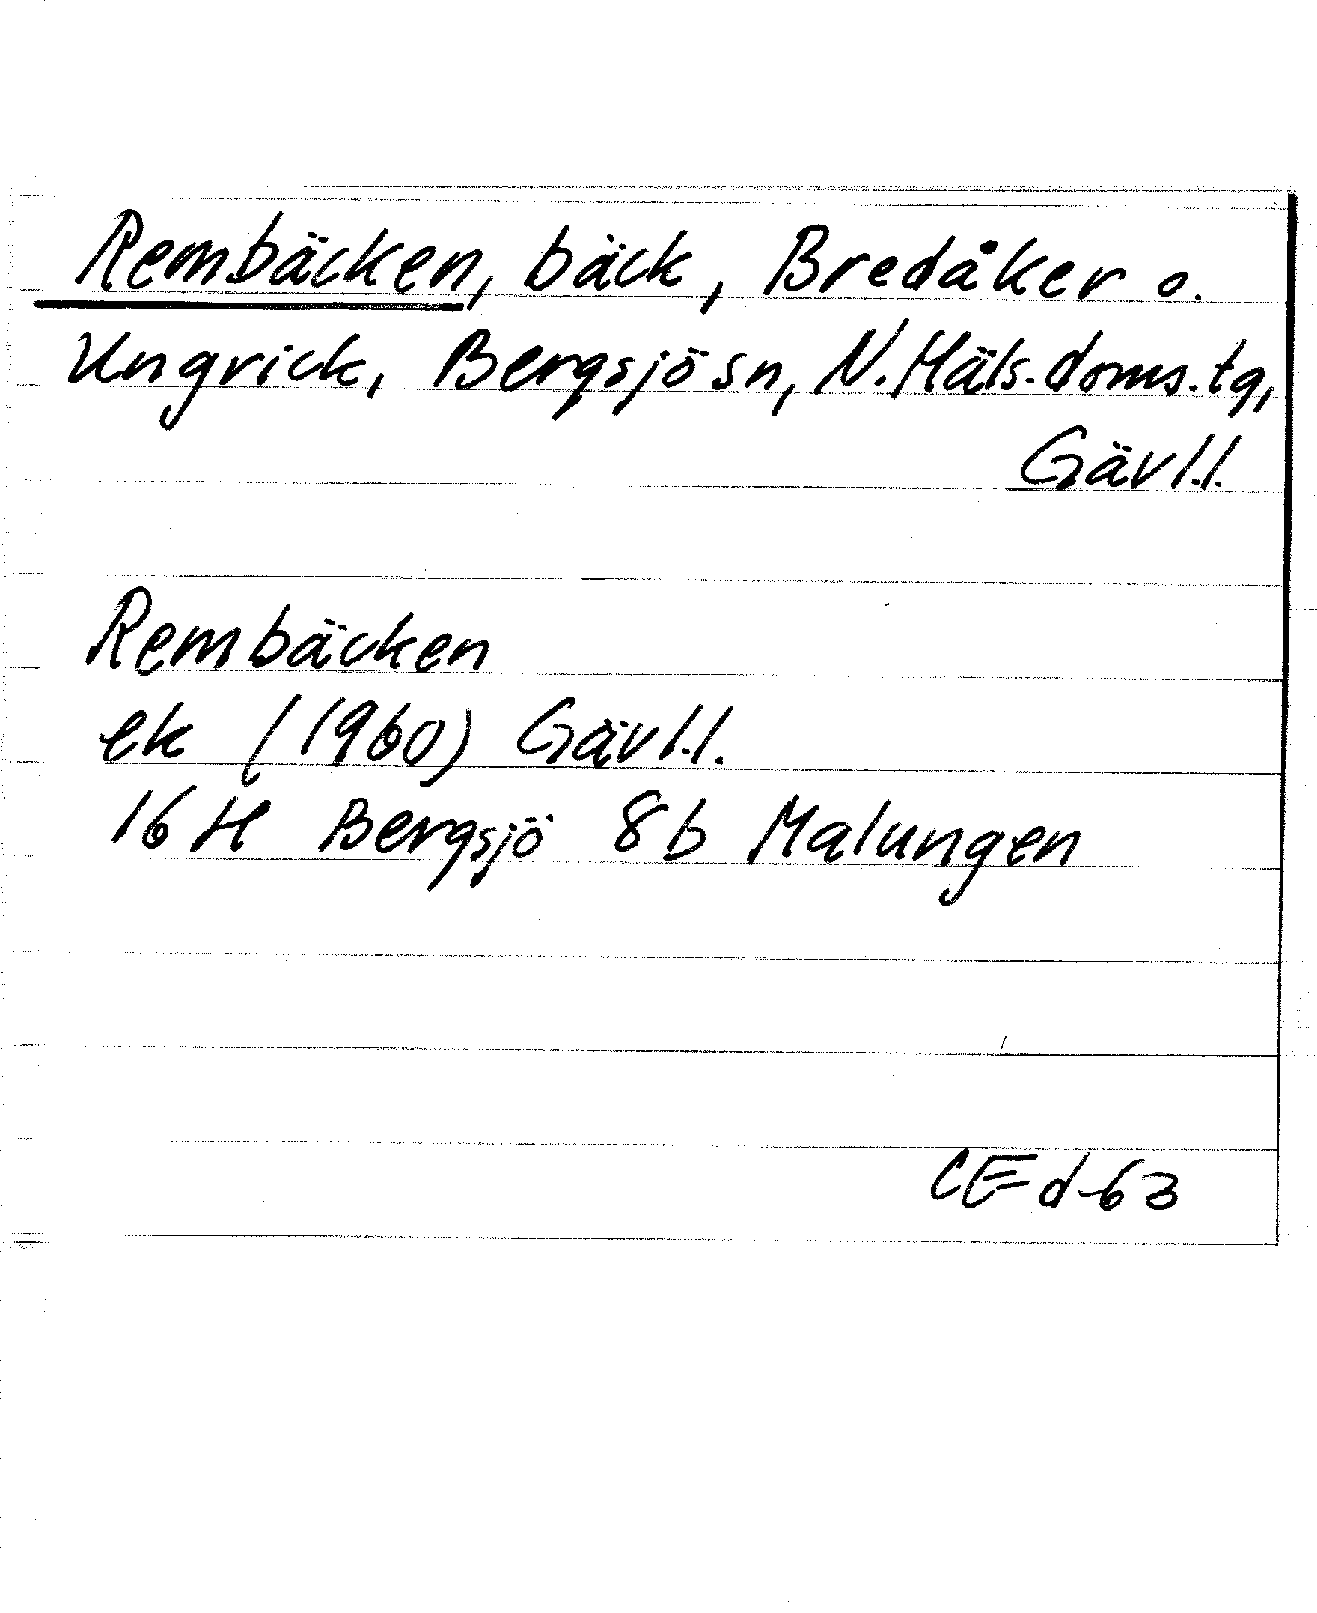 Rembäcken, bäck, Bredåker o.
Ungrick, Bergsjö sn, N. Häls. doms. tg,
Gävl.l.
Rembäcken
ek (1960) Gävl.l.
16 H Bergsjö 8b Malungen
CE d-63